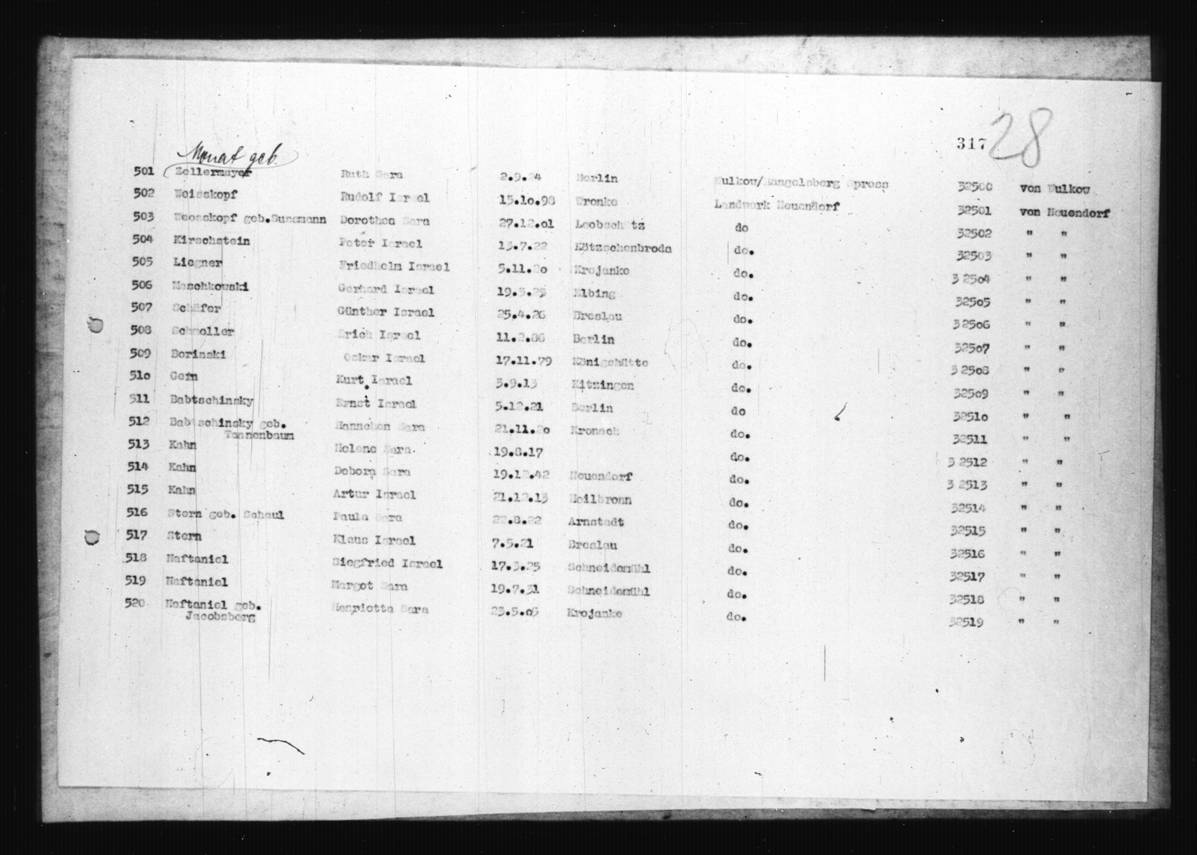 317 28
Monat geb.
501 Zellermayer Ruth Sara 2.9.24 Berlin Wulkow/Hangelsberg Spree 32500 von Wulkow
502 Weisskopf Rudolf Israel 15.10.98 Wronke Landwerk Neuendorf 32501 von Neuendorf
503 geb. Dorothea Sara 27.12.01 Leobschütz do 32502 " "
504 Kirschstein Peter Israel 13.7.22 Kötzschenbroda do. 32503 " "
505 Liegner Friedhelm Israel 5.11.20 Krojanke do. 3 2504 " "
506 Maschkowski Gerhard Israel 19.3.25 Elbing do. 32505 " "
507 Schäfer Günther Israel 25.4.26 Breslau do. 3 2506 " "
508 Schmoller Erich Israel Berlin do. 32507 " "
509 Dorinski Oskar Israel 17.11.79 Königshütte do. 3 2508 " "
510 Kurt Israel 3.9.13 Kitzingen do. 32509 " "
511 Babtschinsky Ernst Israel 5.12.21 Berlin do 32510 " "
512 Babtschinsky geb. Hannchen Sara 21.11.20 Kronach do. 32511 " "
Tannenbaum
513 Kahn Helene Sara 19.8.17 do. 3 2512 " "
514 Kahn Debora Sara 19.12.42 Neuendorf do. 3 2513 " "
515 Kahn Artur Israel 21.12.13 Heilbronn do. 32514 " "
516 Stern geb. Schaul Paula Sara 22.8.22 Arnstadt do. 32515 " "
517 Stern Klaus Israel 7.5.21 Breslau do. 32516 " "
518 Naftaniel Siegfried Israel 17.3.25 Schneidemühl do. 32517 " "
519 Naftaniel Margot Sara 19.7.31 Schneidemühl do. 32518 " "
520 Naftaniel geb. Henriette Sara 23.5.05 Krojanke do. 32519 " "
Jacobsberg